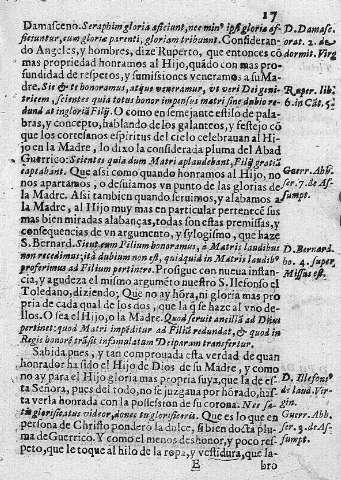 17
Damasceno. Seraphim gloria aficiunt, nec minº ipsi gloria af-
ficiuntur, cum gloriæ parenti, gloriam tribuunt. Consideran-
do Angeles, y hombres, dize Ruperto, que entonces cõ
mas propriedad honramos al Hijo, quãdo con mas pro-
fundidad de respetos, y sumissiones veneramos a su Ma-
dre. Sic & te honoramus, atque veneramur, ut veri Dei geni-
tricem, scientes quia totus honor impensus matri sine dubio re-
dud at in gloriã Filij. O como en semejante estilo de pala-
bras, y concepto, hablando de los galanteos, y festejo cõ
que los cortesanos espiritus del cielo celebrauan al Hi-
jo en la Madre, lo dixo la considerada pluma del Abad
Guerrico: Scientes quia dum Matri aplaudebant, Filij gratiã
captabant. Que assi como quando honramos al Hijo, no
nos apartamos, o desuiamos vn punto de las glorias de
la Madre. Assi tambien quando seruimos, y alabamos a
la Madre, al Hijo muy mas en particular pertenecẽ sus
mas bien miradas alabanças, todas son estas premissas, y
consequencias de vn argumento, y sylogismo, que haze
S. Bernard. Sicut cum Filium honoramus, à Matris laudibus
non recedimus; ità dubium non est, quidquid in Matris laudibº
proferimus ad Filium pertinere. Prosigue con nueua instan-
cia, y agudeza el mismo argumẽto nuestro S. Ilefonso el
Toledano, diziendo: Que no ay hõra, ni gloria mas pro
pria de cada qual de los dos, que la q se haze al vno de-
llos. O sea el Hijo, o la Madre. Quod seruit ancillæ ad Dñs
pertinet: quod Matri impẽditur ad Filiũ redundat, & quod in
Regis honorẽ trãsit in famulatum Deiparam transfertur.
Sabida pues, y tan comprouada esta verdad de quan
honrador ha sido el Hijo de Dios de su Madre, y como
no ay para el Hijo gloria mas propria suya, que la de es-
ta Señora, pues del todo, no le juzgaua por hõrado, has-
ta verla honrada con la possession de su corona. Nec sa-
tis glorificatus videor, donec tu glorificeris. Que es lo que en
persona de Christo ponderò la dulce, si bien docta plu-
ma de Guerrico. Y como el menos deshonor, y poco res-
peto, que le toque al hilo de la ropa, y vestidura, que sa-
E
bro
D. Damasc.
orat. 2. de
dormit. Virg
Ruper. lib.
6. in Cãt. 5.
Guerr. Abb.
ser. 7. de As-
sumpt.
D. Bernard.
ho. 4. super
Missus est.
D. Illefonsº
de laud. Vir-
gin.
Guerr. Abb.
ser. 3. de As-
sumpt.